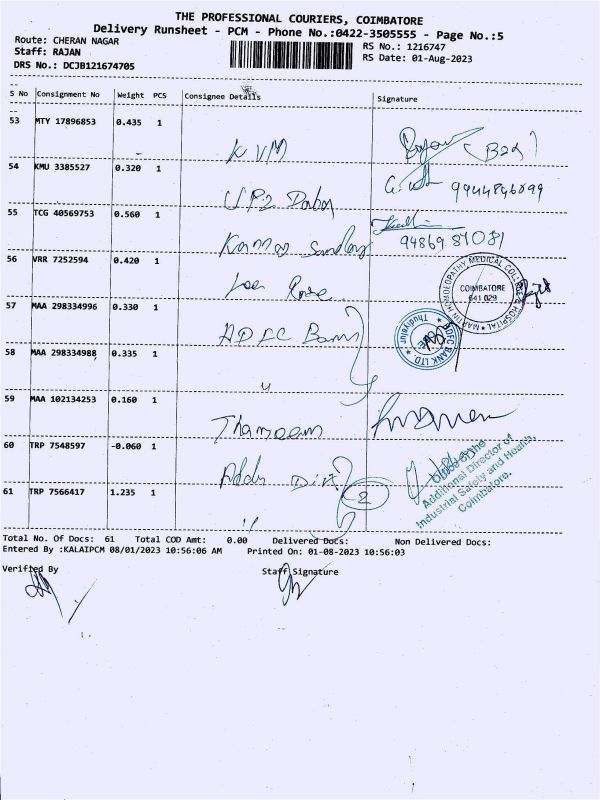 THE PROFESSIONAL COURIERS, COIMBATORE
Delivery Runsheet - PCM - Phone No.:0422-3505555 - Page No.:5
Route: CHERAN NAGAR RS No.: 1216747
Staff: RAJAN RS Date: 01-Aug-2023
DRS No.: DCJB121674705
S No Consignment No Weight PCS Consignee Details Signature
53 MTY 17896853 0.435 1
KVM
54 KMU 3385527 0.320 1
9944896899
55 TCG 40569753 0.560 1
94869 87081
56 VRR 7252594 0.420 1
MARTIN HOMOEOPATHY MEDICAL COLLEGE & HOSPITAL
COIMBATORE
641 029
57 MAA 298334996 0.330 1
HDFC Bank
HDFC BANK LTD. Thudiyalur
58 MAA 298334988 0.335 1
"
59 MAA 102134253 0.160 1
Thameem
60 TRP 7548597 -0.060 1
Office of the
Additional Director of
Industrial Safety and Health,
Coimbatore.
61 TRP 7566417 1.235 1
2
"
Total No. Of Docs: 61 Total COD Amt: 0.00 Delivered Docs: Non Delivered Docs:
Entered By :KALAIPCM 08/01/2023 10:56:06 AM Printed On: 01-08-2023 10:56:03
Verified By Staff Signature